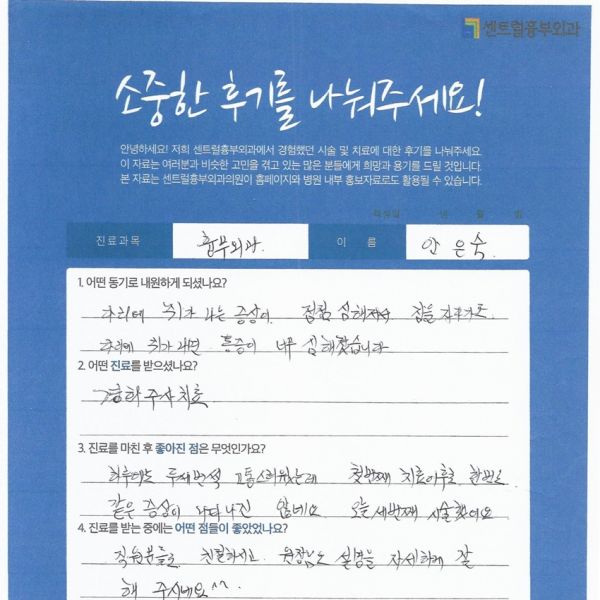 센트럴흉부외과
소중한 후기를 나눠주세요!
안녕하세요! 저희 센트럴흉부외과에서 경험했던 시술 및 치료에 대한 후기를 나눠주세요.
이 자료는 여러분과 비슷한 고민을 겪고 있는 많은 분들에게 희망과 용기를 드릴 것입니다.
본 자료는 센트럴흉부외과의원이 홈페이지와 병원 내부 홍보자료로도 활용될 수 있습니다.
작성일 년 월 일
진료과목 흉부외과. 이 름 안 은 숙.
1. 어떤 동기로 내원하게 되셨나요?
다리에 쥐가 나는 증상이 점점 심해져서 잠을 자다가도
다리에 쥐가 나면 통증이 너무 심해졌습니다
2. 어떤 진료를 받으셨나요?
경화 주사 치료
3. 진료를 마친 후 좋아진 점은 무엇인가요?
하루에도 두세번씩 고통스러웠는데 첫번째 치료이후로 한번도
같은 증상이 나타나진 않네요 오늘 세번째 시술했어요
4. 진료를 받는 중에는 어떤 점들이 좋았었나요?
직원분들도 친절하시고 원장님도 설명을 자세하게 잘
해 주시네요^^